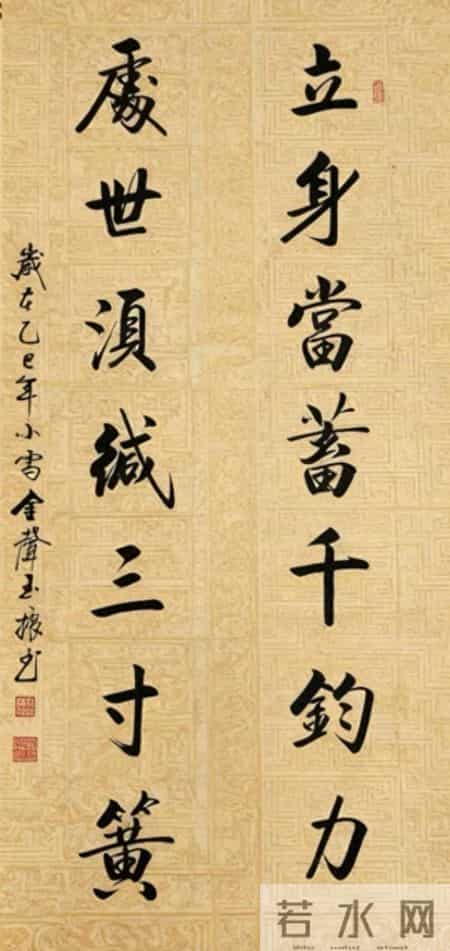 立身當蓄千鈞力
處世須緘三寸簧
歲在乙巳年小雪金聲玉振書
若水网